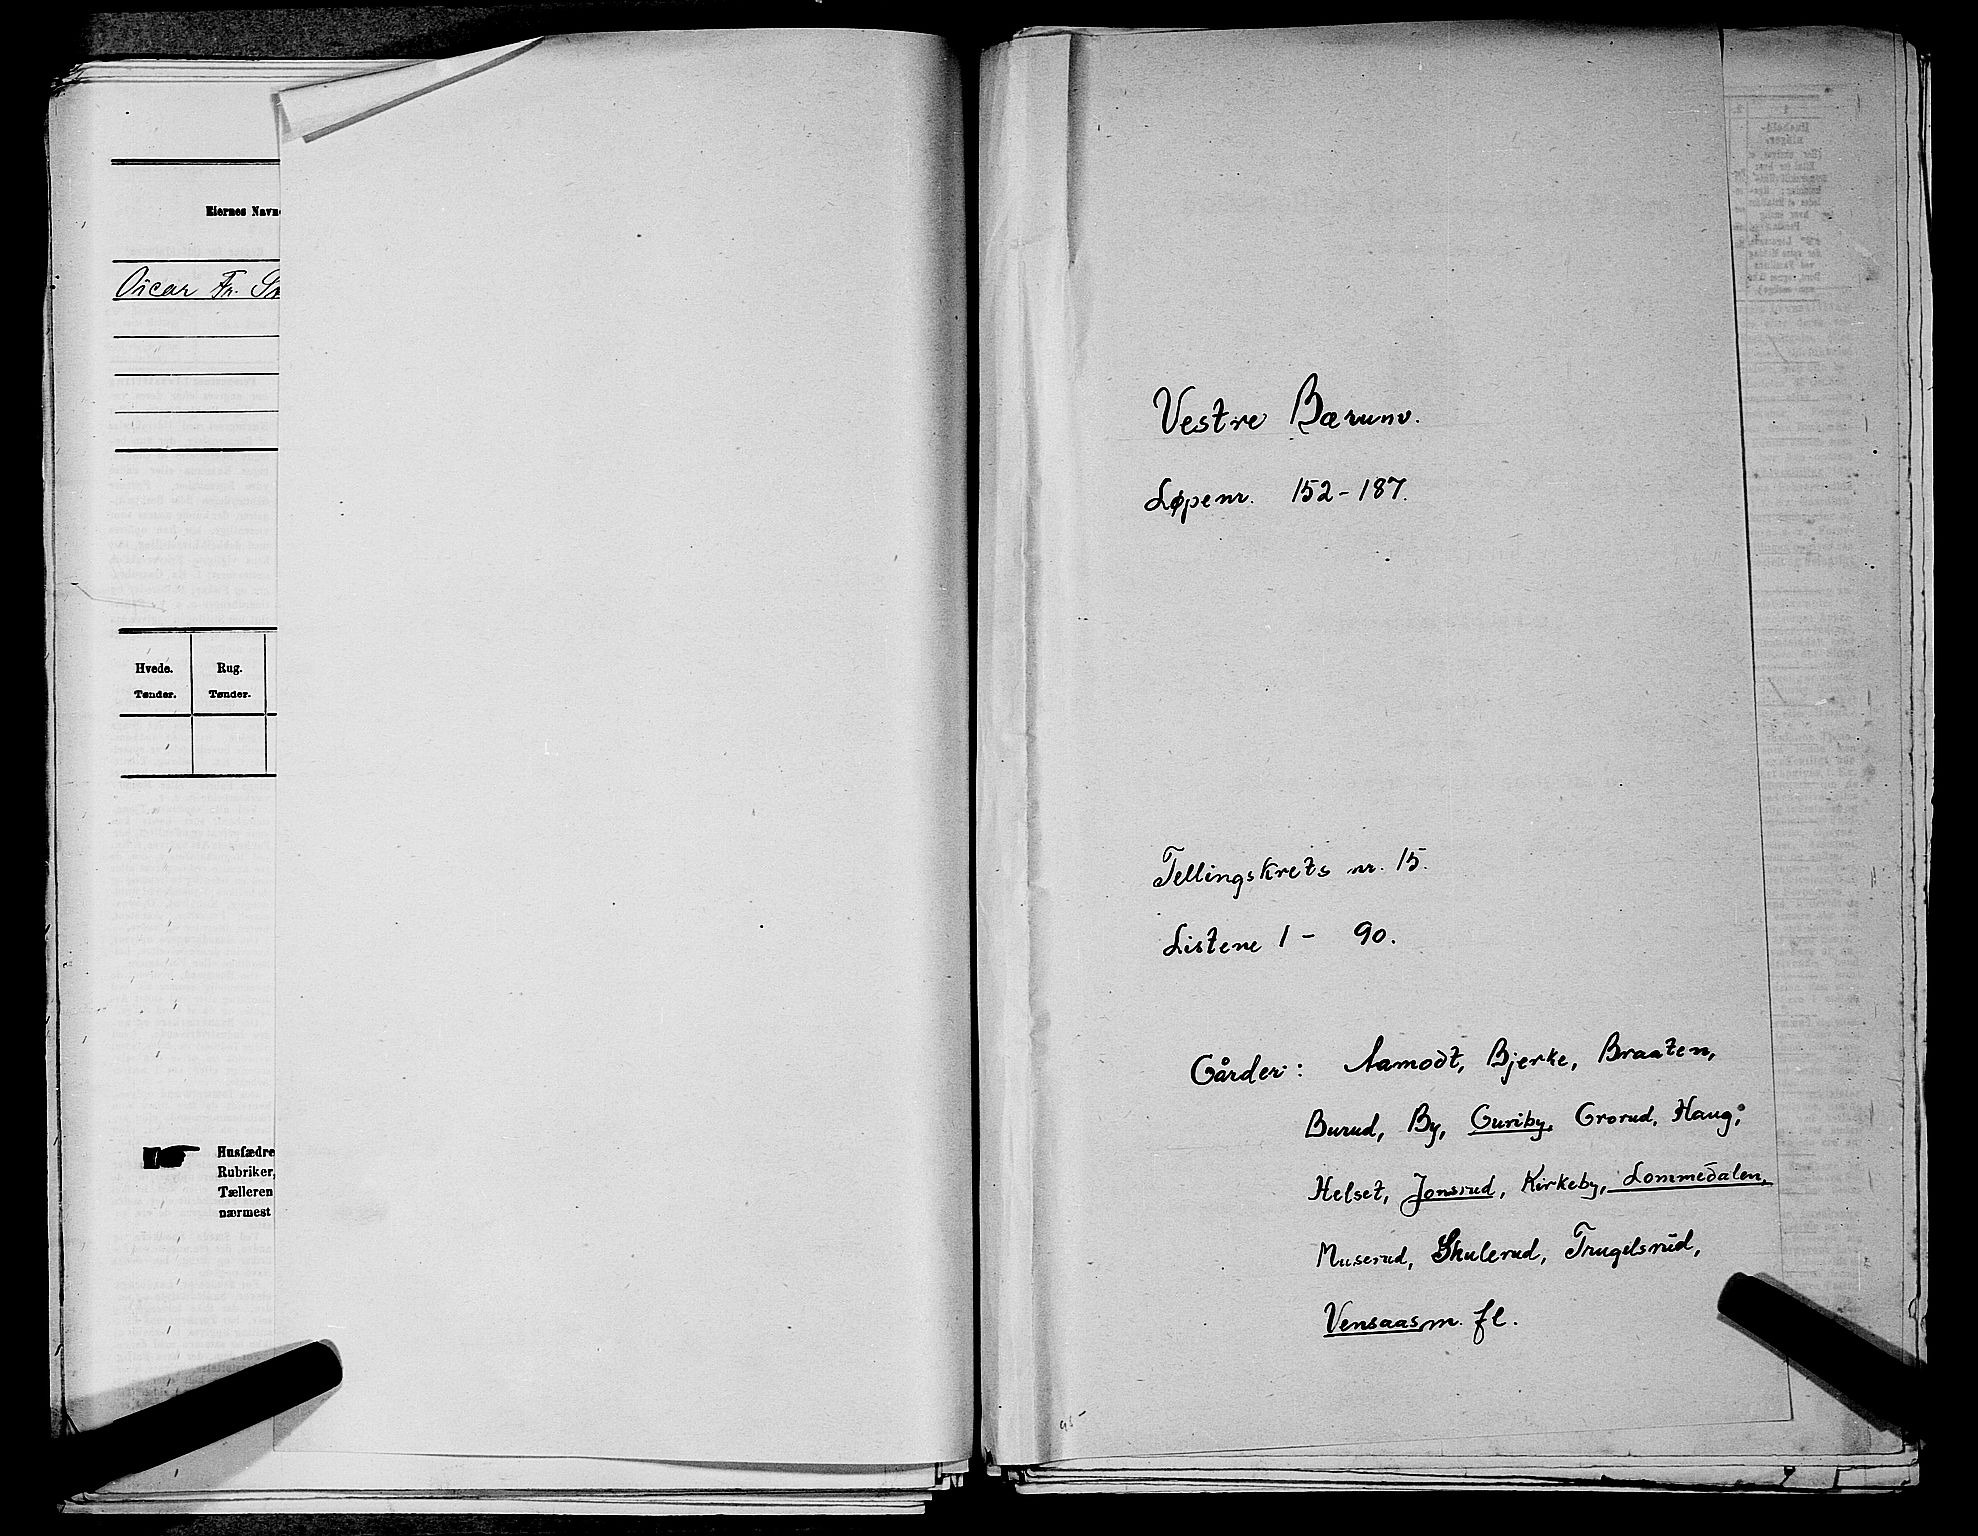 Eiernes Navn
Oscar Fr.
Hvede. Rug.
Tønder. Tønder.
Husfædre
Rubriker,
Tælleren
nærmest
Vestre Bærum.
Løpenr. 152-187.
Tellingskrets nr. 15.
Listene 1 - 90.
Gårder: Aamodt, Bjerke, Braaten,
Burud, By, Guriby, Grorud, Haug,
Helset, Jonsrud, Kirkeby, Lommedalen,
Muserud, Skulerud, Trugelsrud,
Vensaas m. fl.